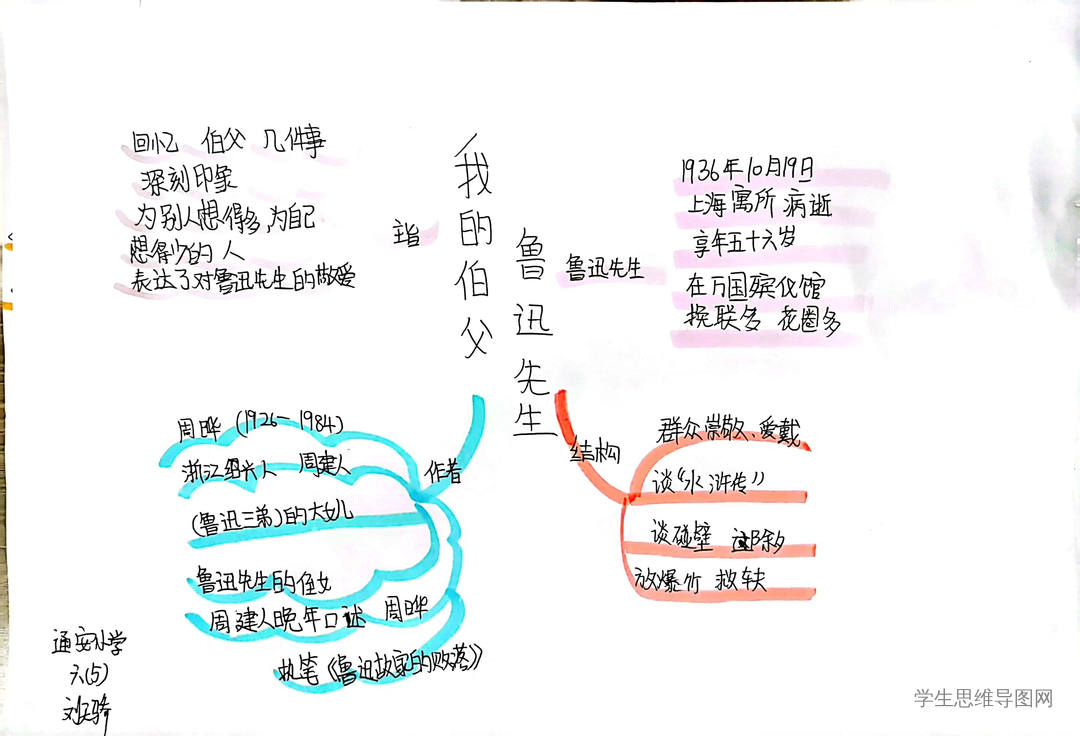 我的伯父
鲁迅先生
主旨
回忆 伯父 几件事
深刻印象
为别人想得多,为自己
想得少的人
表达了对鲁迅先生的敬爱
鲁迅先生
1936年10月19日
上海寓所 病逝
享年五十六岁
在万国殡仪馆
挽联多 花圈多
作者
周晔 (1926-1984)
浙江绍兴人 周建人
(鲁迅三弟)的大女儿
鲁迅先生的侄女
周建人晚年口述 周晔
执笔《鲁迅故家的败落》
结构
群众崇敬、爱戴
谈“水浒传”
谈碰壁
放爆竹 救车夫
通安小学
六(5)
学生思维导图网